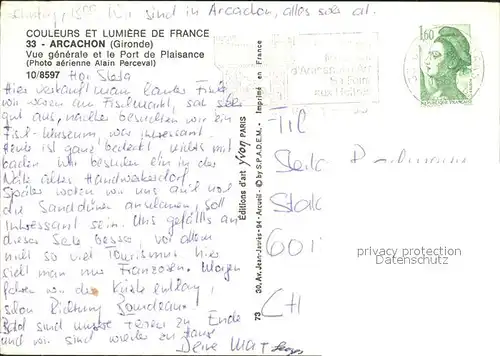 Samstag, 1985 Wir sind in Arcachon, alles sehr gut.
COULEURS ET LUMIÈRE DE FRANCE
33 - ARCACHON (Gironde)
Vue générale et le Port de Plaisance
(Photo aérienne Alain Perceval)
10/8597
Hoi
Hier verkauft man lauter Fische
wir waren am Fischmarkt, sah sehr
gut aus, nachher besuchten wir ein
Fisch-Museum, war interessant.
Heute ist ganz bedeckt, nichts mit
baden wir besuchen ein in der
Nähe altes Handwerkerdorf.
Später wollen wir uns auch noch
die Sanddünen anschauen, soll
interessant sein. Uns gefällts an
dieser Seite besser, vor allem
nicht so viel Tourismus, hier
sieht man nur Franzosen. Morgen
fahren wir der Küste entlang,
schon Richtung Bourdeaux.
Bald sind unsere Ferien zu Ende
und wir sind wieder zu Hause
Deine
Editions d'art yvon PARIS
30, Av. Jean-Jaurès - 94 - Arcueil - © by S.P.A.D.E.M. - Imprimé en France
73
1,60
RÉPUBLIQUE FRANÇAISE
d'Arcachon
sa Foire
aux Huîtres
CH
privacy protection
Datenschutz